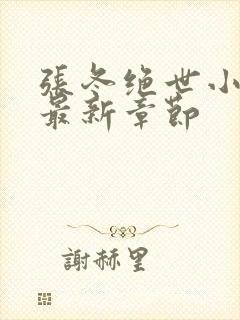 張冬绝世小
最新章節
謝赫里